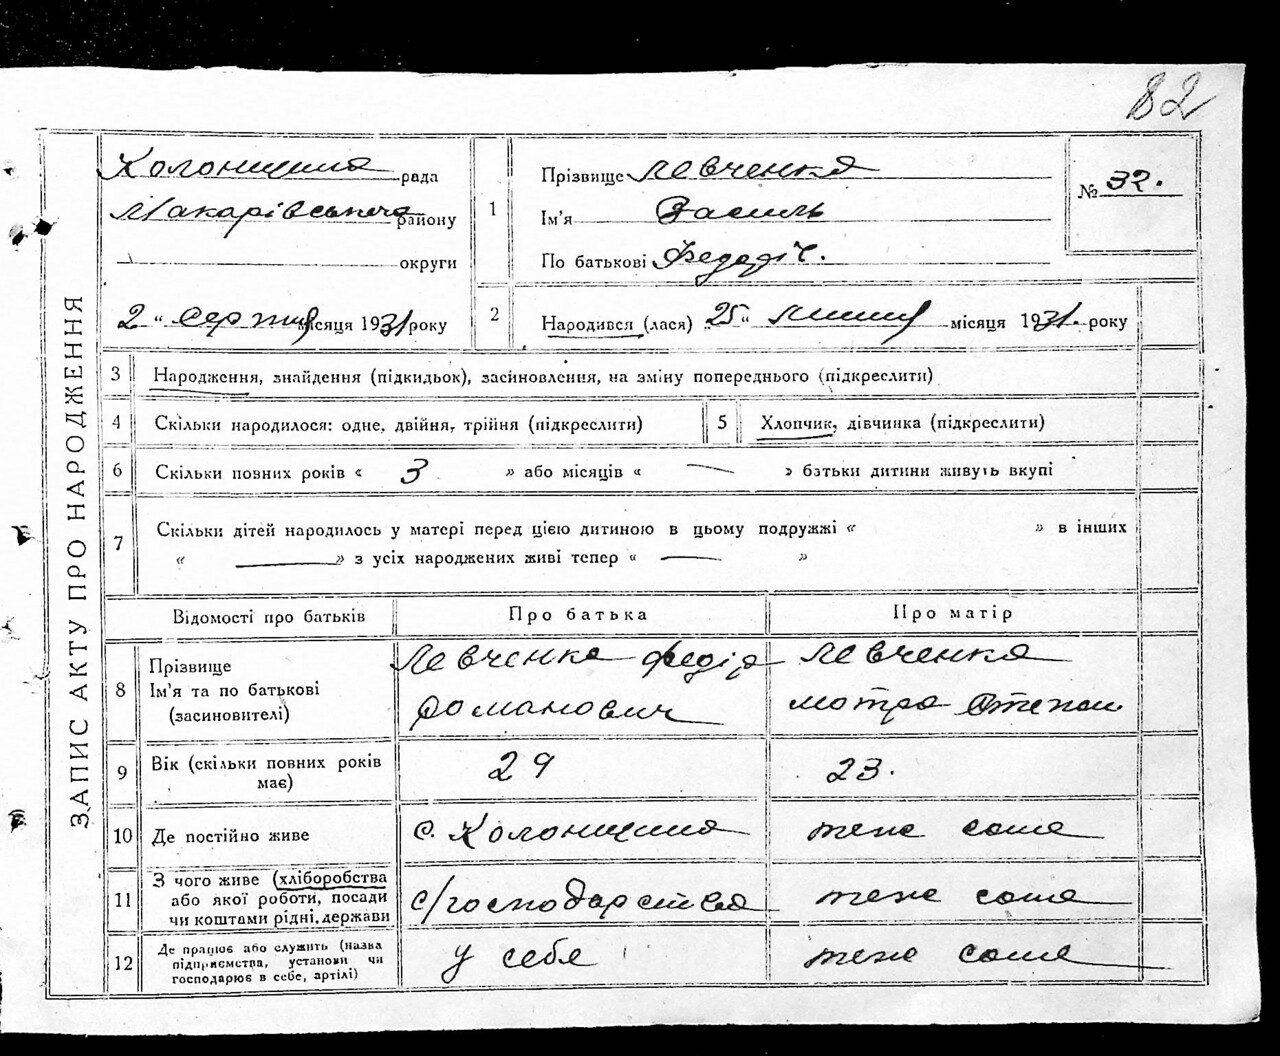 82
ЗАПИС АКТУ ПРО НАРОДЖЕННЯ
Колонщина рада
Макарівського району
округи
2 " серпня місяця 1931 року
1
Прізвище Левченко
Ім'я Василь
По батькові Федодіч.
№ 32.
2
Народився (лася) 25 " липня місяця 1931. року
3 Народження, знайдення (підкидьок), засиновлення, на зміну попереднього (підкреслити)
4 Скільки народилося: одне, двійня, трійня (підкреслити)
5 Хлопчик, дівчинка (підкреслити)
6 Скільки повних років « 3 » або місяців « — » батьки дитини живуть вкупі
7 Скільки дітей народилось у матері перед цією дитиною в цьому подружжі « » в інших
« — » з усіх народжених живі тепер « — »
Відомості про батьків Про батька Про матір
8 Прізвище
Ім'я та по батькові
(засиновителі)
Левченко Федір
Романович
Левченко
Мотря Степан
9 Вік (скільки повних років
має)
29 23.
10 Де постійно живе с. Колонщина теж саме
11 З чого живе (хліборобства
або якої роботи, посади
чи коштами рідні, держави
с/господарства теж саме
12 Де працює або служить (назва
підприємства, установи чи
господарює в себе, артілі)
у себе теж саме